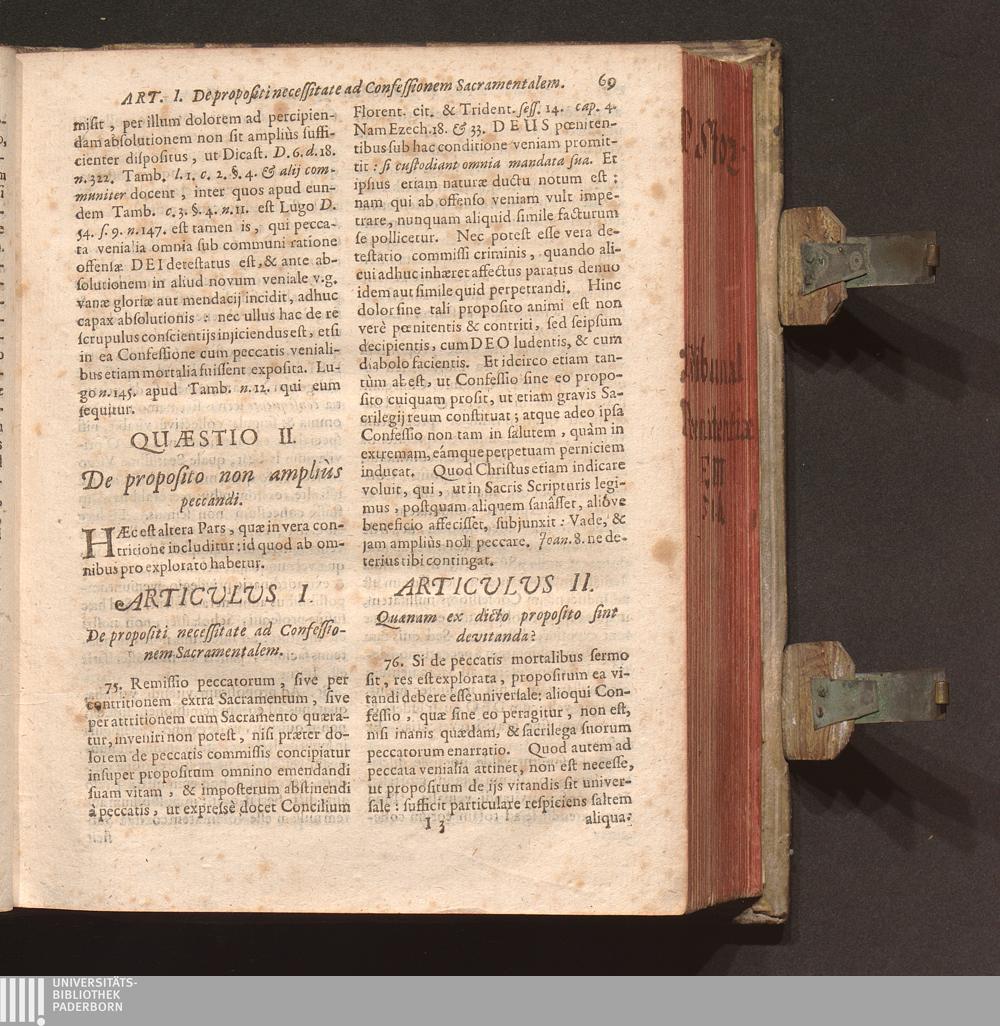 ART. I. De propositi necessitate ad Confessionem Sacramentalem. 69
misit, per illum dolorem ad percipien-
dam absolutionem non sit ampliùs suffi-
cienter dispositus, ut Dicast. D. 6. d. 18.
n. 322. Tamb. l. 1. c. 2. §. 4. & alij com-
muniter docent, inter quos apud eun-
dem Tamb. c. 3. §. 4. n. 11. est Lugo D.
14. s. 9. n. 147. est tamen is, qui pecca-
ta venialia omnia sub communi ratione
offensæ DEI detestatus est, & ante ab-
solutionem in aliud novum veniale v.g.
vanæ gloriæ aut mendacij incidit, adhuc
capax absolutionis : nec ullus hac de re
scrupulus conscientijs injiciendus est, etsi
in ea Confessione cum peccatis veniali-
bus etiam mortalia fuissent exposita. Lu-
go n. 145. apud Tamb. n. 12. qui eum
sequitur.
QUÆSTIO II.
De proposito non ampliùs
peccandi.
HÆc est altera Pars, quæ in vera con-
tritione includitur: id quod ab om-
nibus pro explorato habetur.
ARTICULUS I.
De propositi necessitate ad Confessio-
nem Sacramentalem.
75. Remissio peccatorum, sive per
contritionem extra Sacramentum, sive
per attritionem cum Sacramento quæra-
tur, inveniri non potest, nisi præter do-
lorem de peccatis commissis concipiatur
insuper propositum omnino emendandi
suam vitam, & imposterum abstinendi
à peccatis, ut expressè docet Concilium
Florent. cit. & Trident. sess. 14. cap. 4.
Nam Ezech. 18. & 33. DEUS pœniten-
tibus sub hac conditione veniam promit-
tit : si custodiant omnia mandata sua. Et
ipsius etiam naturæ ductu notum est :
nam qui ab offenso veniam vult impe-
trare, nunquam aliquid simile facturum
se pollicetur. Nec potest esse vera de-
testatio commissi criminis, quando ali-
cui adhuc inhæret affectus paratus denuo
idem aut simile quid perpetrandi. Hinc
dolor sine tali proposito animi est non
verè pœnitentis & contriti, sed seipsum
decipientis, cum DEO ludentis, & cum
diabolo facientis. Et idcirco etiam tan-
tùm abest, ut Confessio sine eo propo-
sito cuiquam prosit, ut etiam gravis Sa-
crilegij reum constituat ; atque adeo ipsa
Confessio non tam in salutem, quàm in
extremam, eámque perpetuam perniciem
inducat. Quod Christus etiam indicare
voluit, qui, ut in Sacris Scripturis legi-
mus, postquam aliquem sanâsset, aliòve
beneficio affecisset, subjunxit : Vade, &
jam ampliùs noli peccare. Joan. 8. ne de-
terius tibi contingat.
ARTICULUS II.
Quænam ex dicto proposito sint
devitanda?
76. Si de peccatis mortalibus sermo
sit, res est explorata, propositum ea vi-
tandi debere esse universale: alioqui Con-
fessio, quæ sine eo peragitur, non est,
nisi inanis quædam, & sacrilega suorum
peccatorum enarratio. Quod autem ad
peccata venialia attinet, non est necesse,
ut propositum de ijs vitandis sit univer-
sale : sufficit particulare respiciens saltem
I 3
aliqua:
P Stoz
Tribunal
Pœnitentiæ
UNIVERSITÄTS-
BIBLIOTHEK
PADERBORN